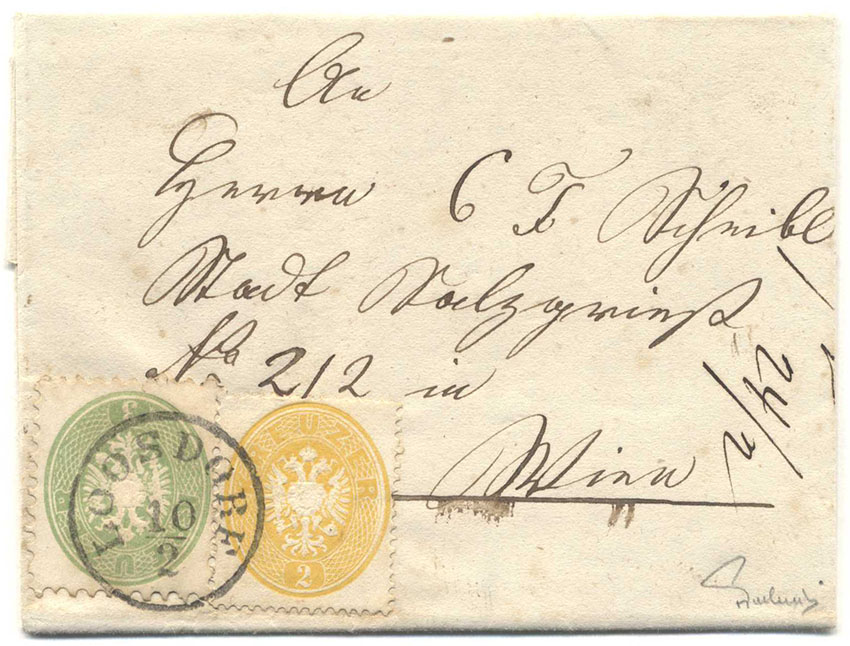 An
Herrn C F Scheibl
Stadt Salzgrieß
No 212 in
Wien
LOOSDORF
10
2
KREUZER
2
3